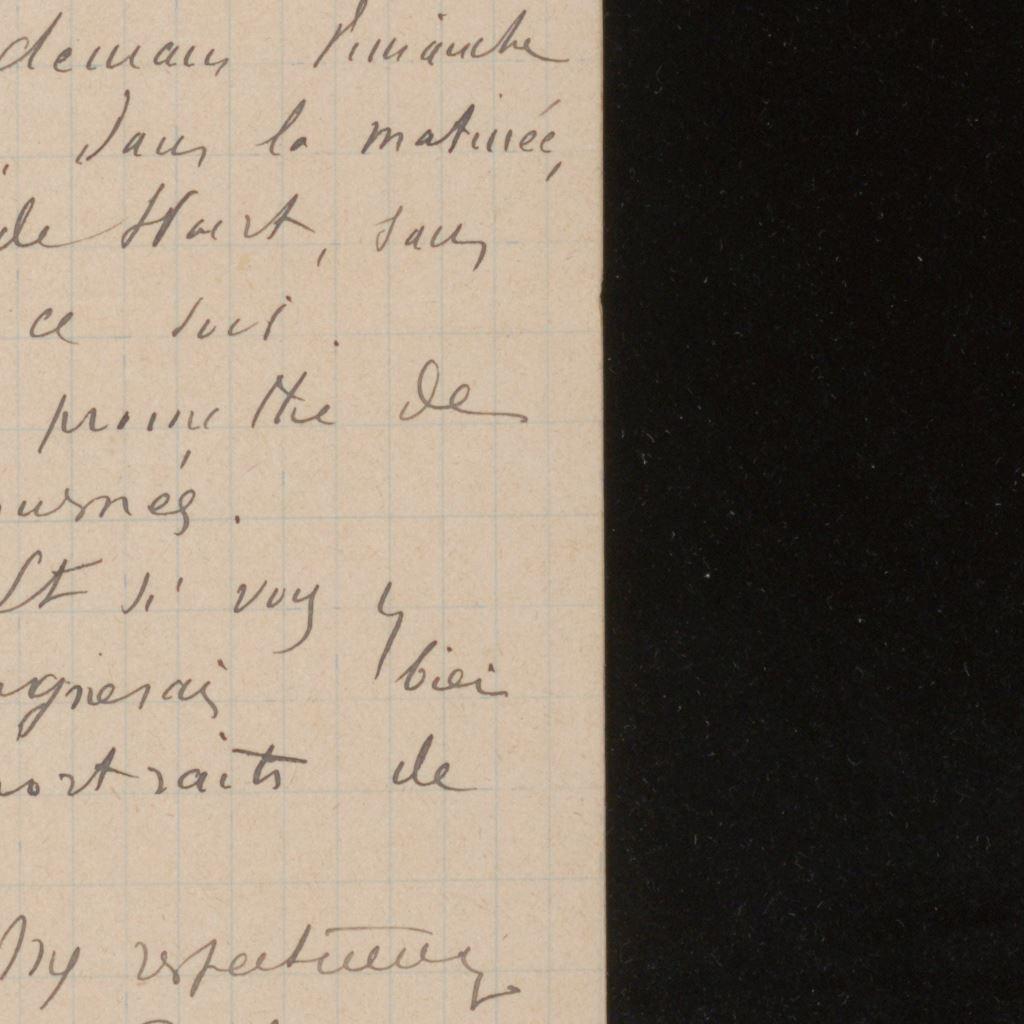 demain Dimanche
, dans la matinée,
de Waert, sans
ce soir.
promettre de
ournée.
Et si vous y
agnerais bien
portraits de
respectueux